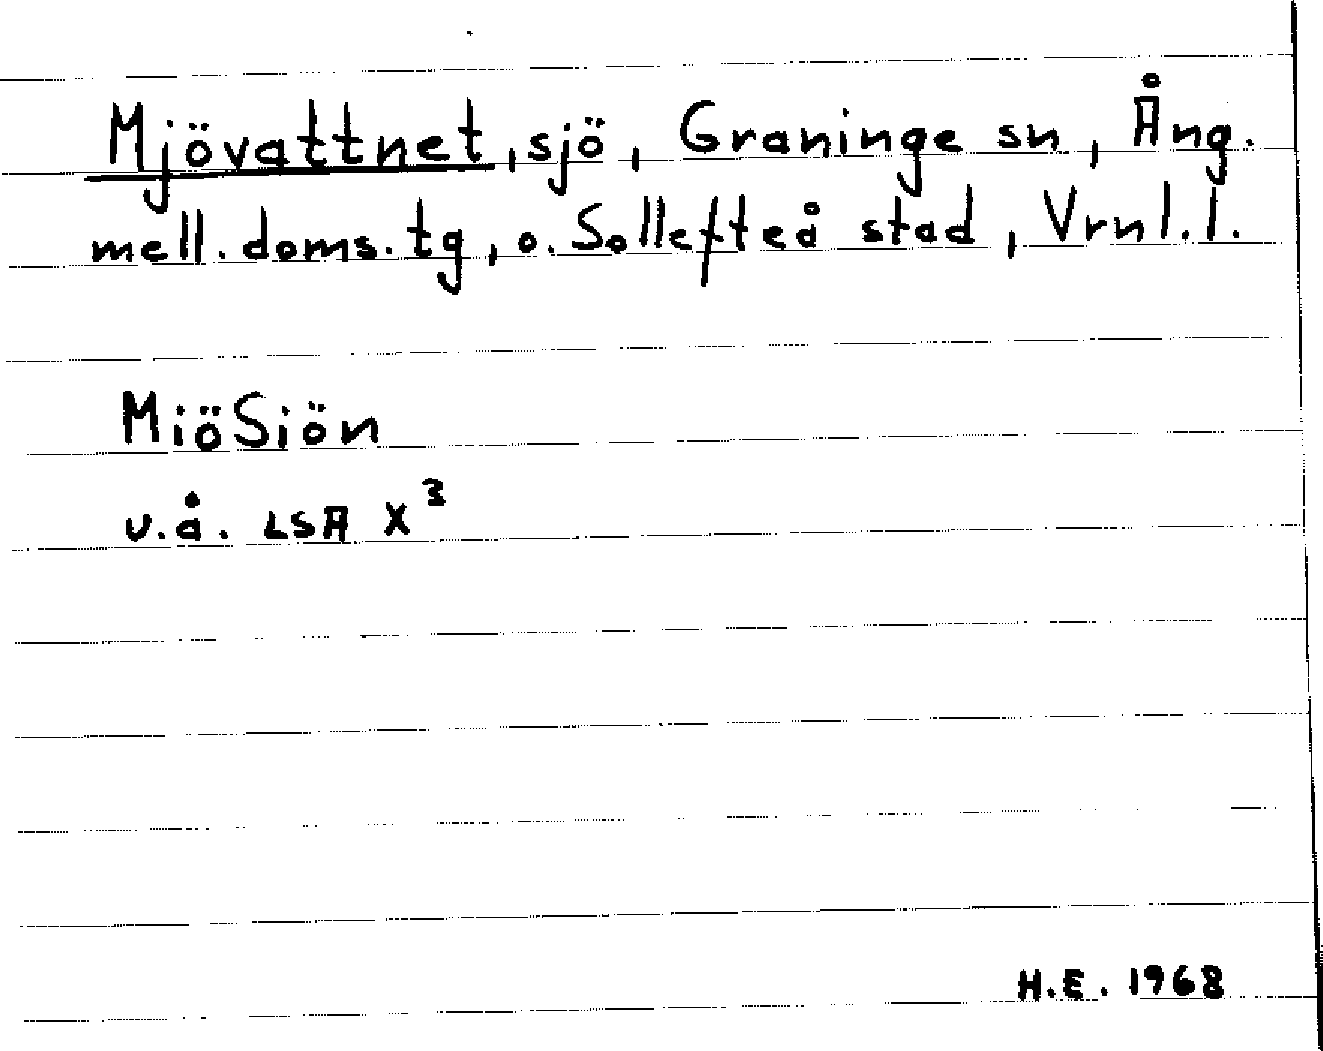 Mjövattnet, sjö, Graninge sn, Ång.
mell. doms. tg, o. Sollefteå stad, Vrnl. l.
MiöSiön
u.å. LSA X³
H.E. 1968